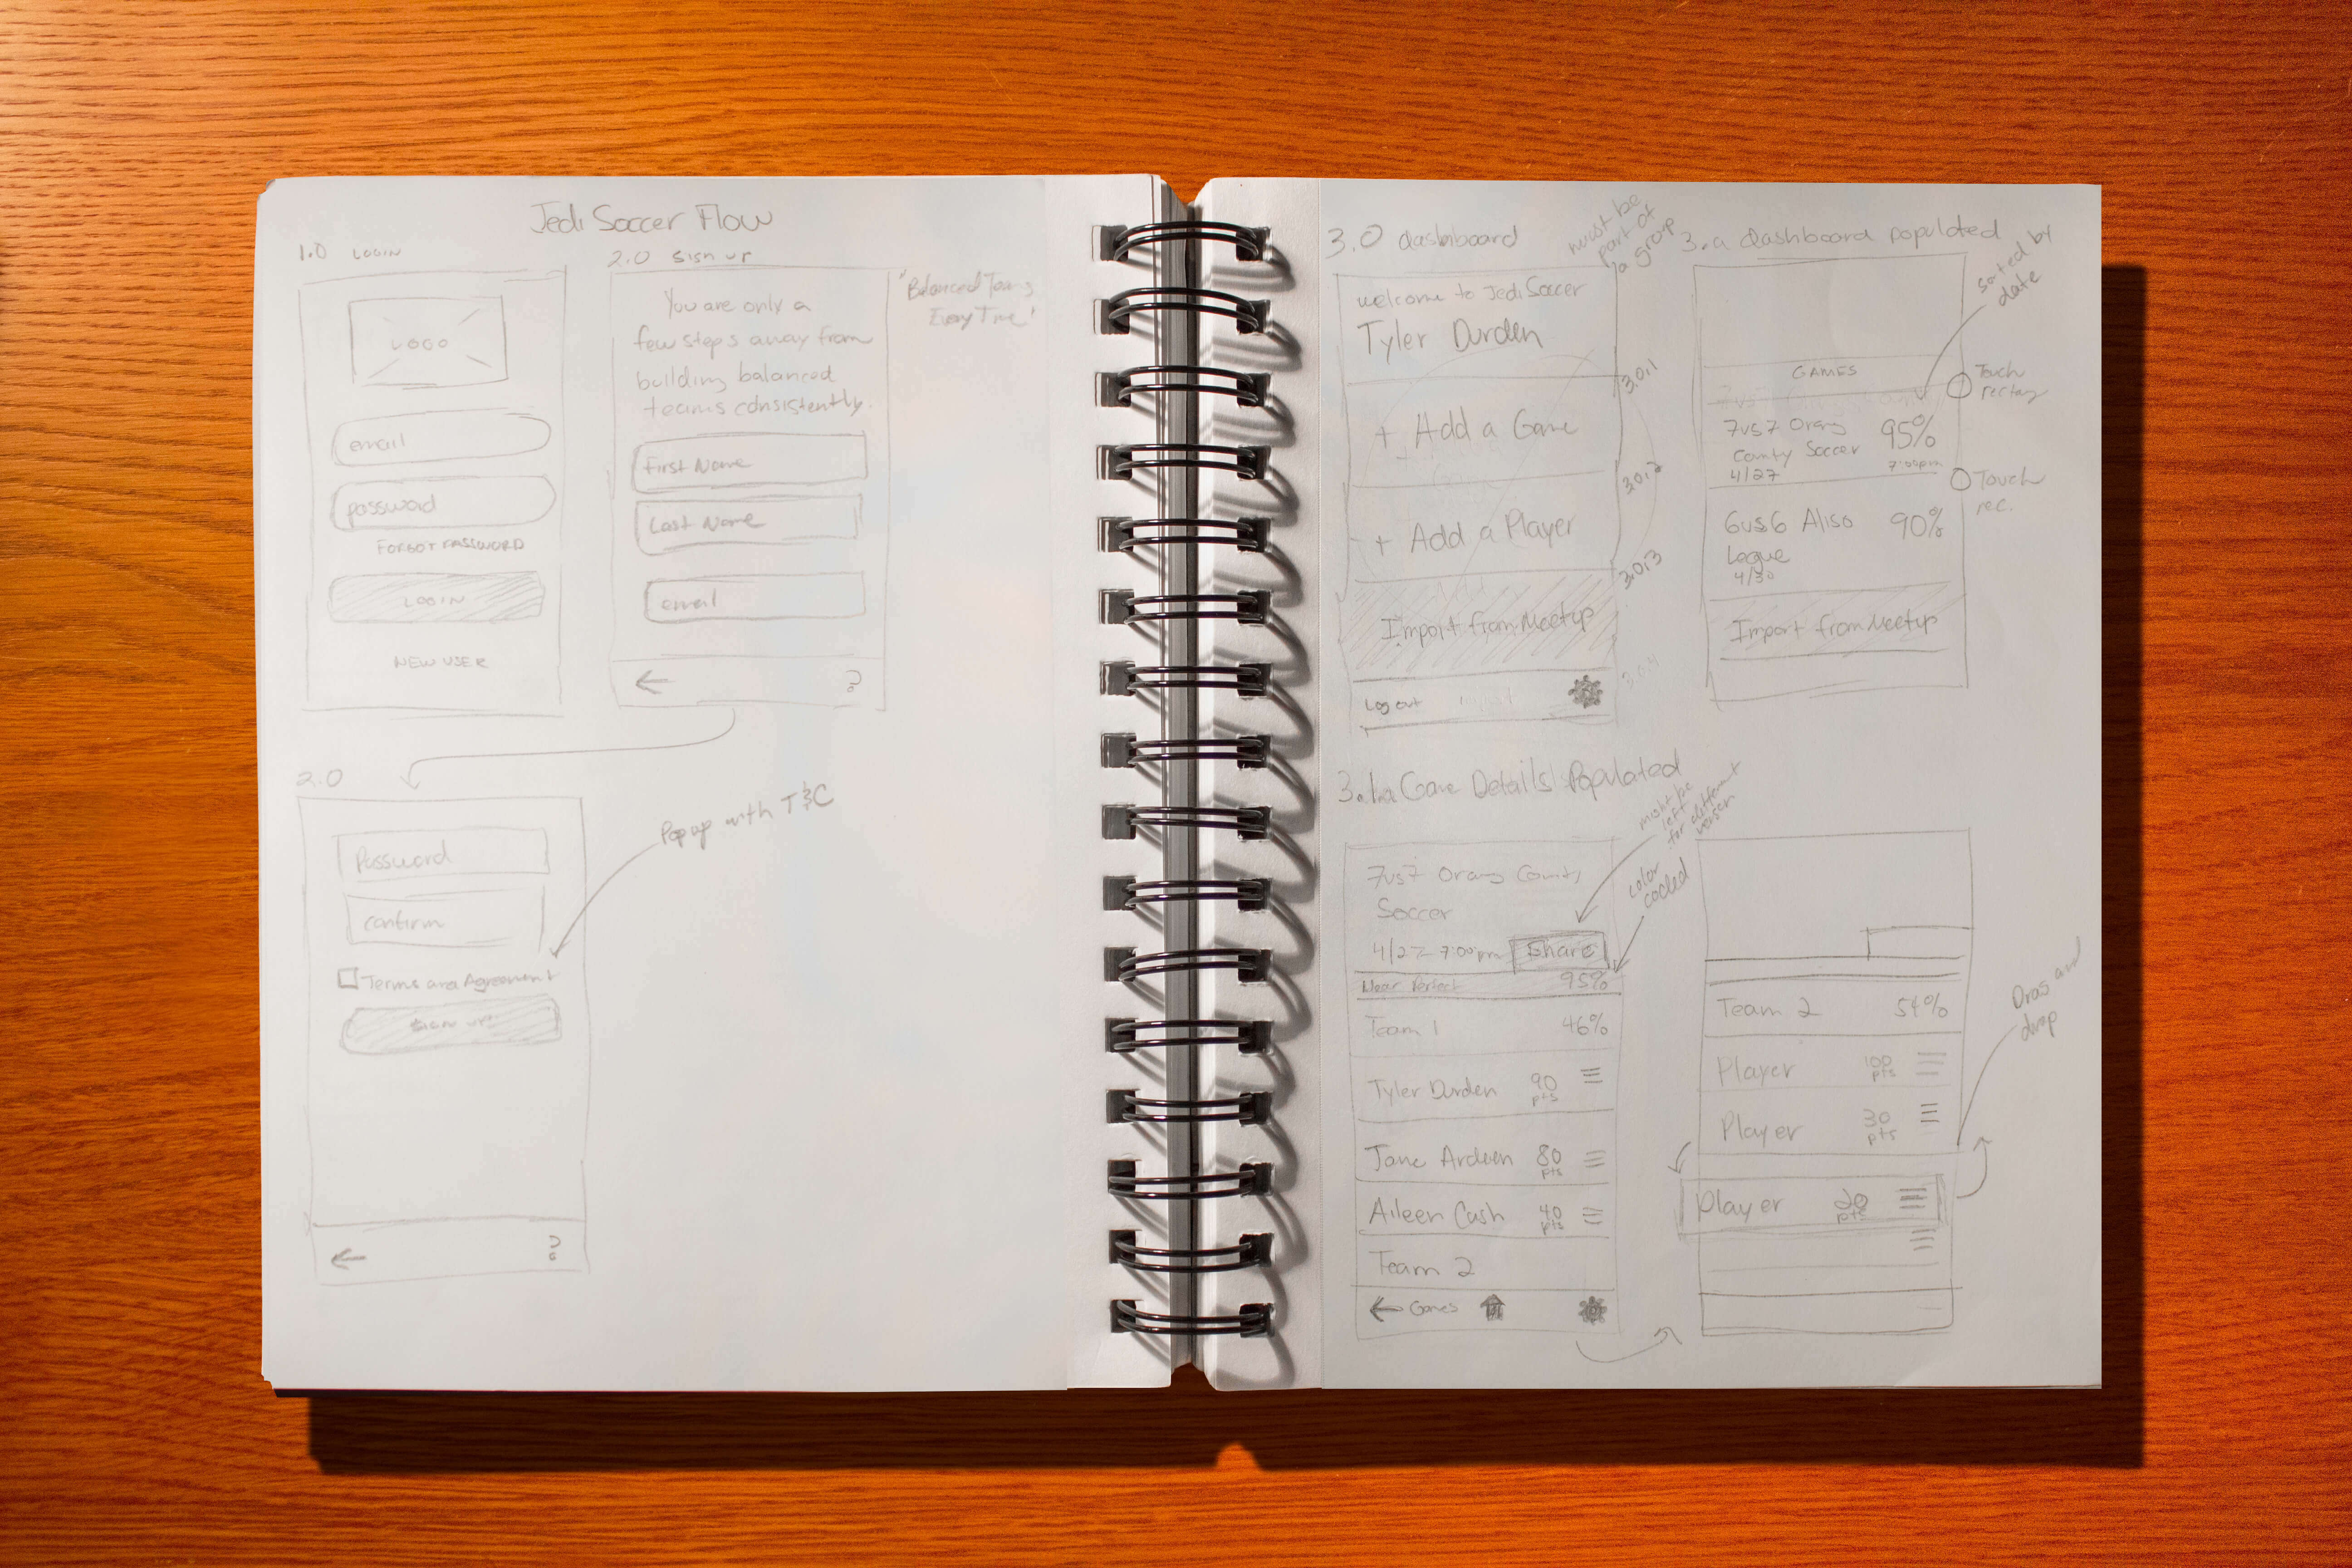 Jedi Soccer Flow
1.0 LOGIN
LOGO
email
password
FORGOT PASSWORD
LOGIN
NEW USER
2.0 Sign up
You are only a
few steps away from
building balanced
teams consistently.
First Name
Last Name
email
?
"Balanced Teams
Every Time"
2.0
Password
confirm
Terms and Agreement
Sign up
?
Popup with T&C
3.0 dashboard
must be
part of
a group
welcome to Jedi Soccer
Tyler Durden
3.0.1
+ Add a Game
3.0.2
+ Add a Player
3.0.3
Import from Meetup
3.0.4
Log out
3.a dashboard populated
sorted by
date
GAMES
Touch
7vs7 Orang
County Soccer
4/27
95%
7:00pm
Touch
rec.
6vs6 Aliso
League
4/30
90%
Import from Meetup
3.1.a Game Details Populated
must be
left
for different
version
color
coded
7vs7 Orang County
Soccer
4/27 7:00pm Share
Near Perfect 95%
Team 1 46%
Tyler Durden 90
pts
Jane Ardeen 80
pts
Aileen Cash 40
pts
Team 2
Games
Team 2 54%
Player 100
pts
Player 30
pts
Player 20
pts
Drag and
drop